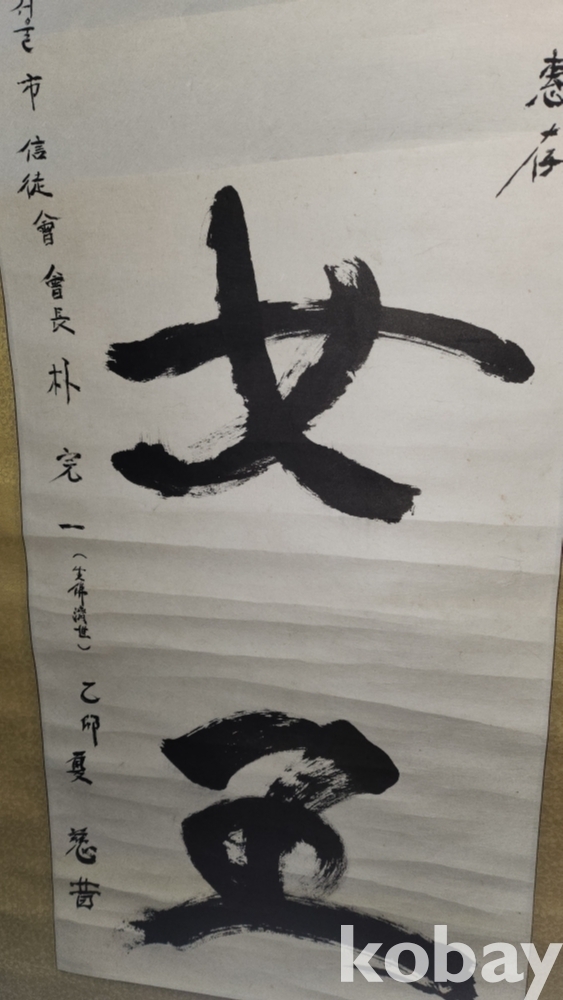 惠存
女
서울市信徒會會長朴完一(生佛濟世)乙卯夏
kobay